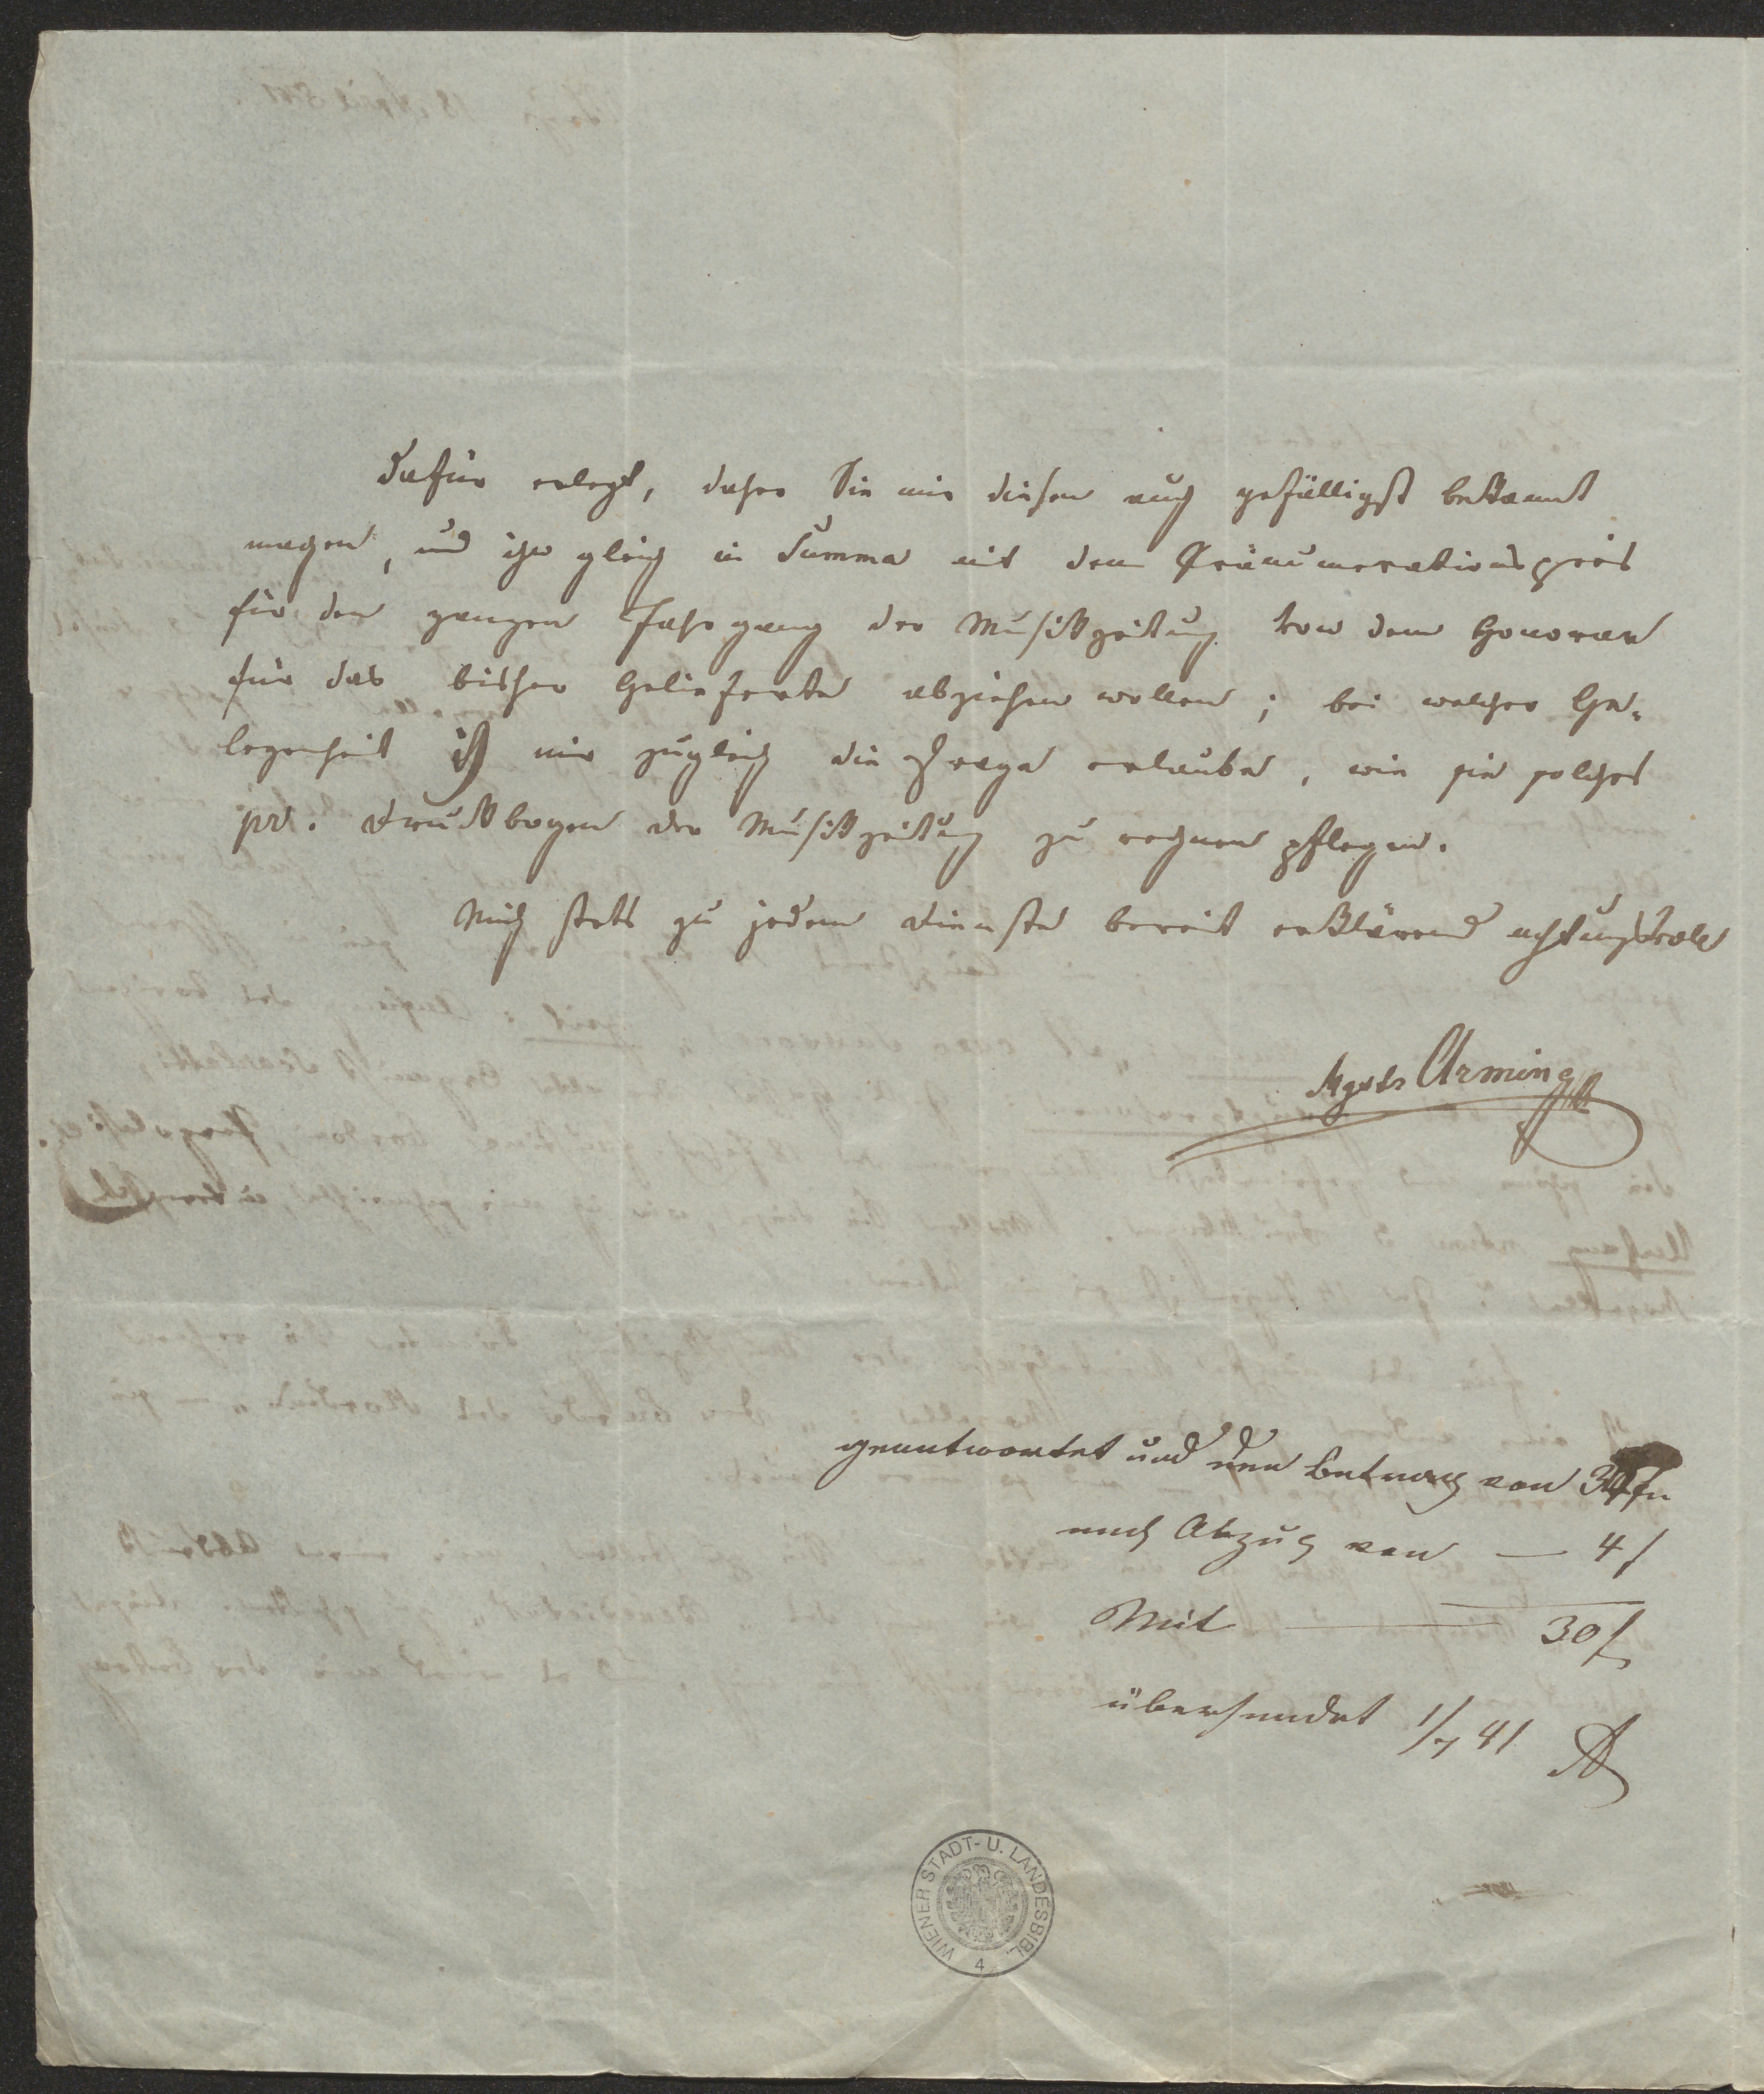 dafür erlegt, daher Sie mir diesen auch gefälligst bekannt
machen, und ihn gleich in Summa mit dem Pränumerationspreis
für den ganzen Jahrgang der Musikzeitung von dem Honorar
für das bisher Gelieferte abziehen wollen; bei welcher Ge-
legenheit ich mir zugleich die Frage erlaube, wie sie solches
pr. Druckbogen der Musikzeitung zu rechnen pflegen.
Mich stets zu jedem Dienste bereit erklärend achtungsvoll
Arming
geantwortet und den Betrag von 34 fr
nach Abzug von — 4 f
Mit — 30 f
übersendet 1/7 41
WIENER STADT- U. LANDESBIBL.
4